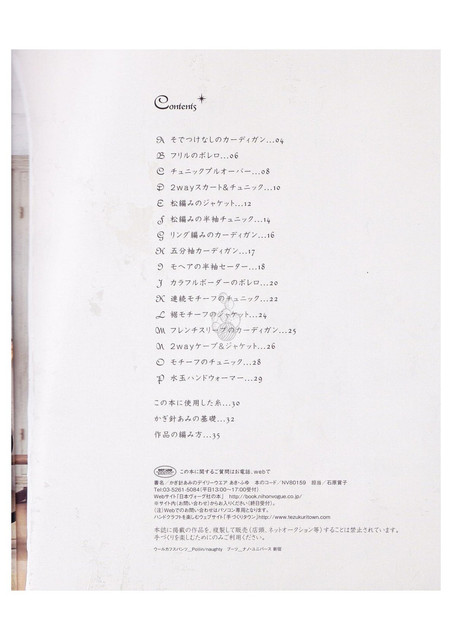 Contents
A そでつけなしのカーディガン...04
B フリルのボレロ...06
C チュニックプルオーバー...08
D 2wayスカート&チュニック...10
E 松編みのジャケット...12
F 松編みの半袖チュニック...14
G リング編みのカーディガン...16
H 五分袖カーディガン...17
I モヘアの半袖セーター...18
J カラフルボーダーのボレロ...20
K 連続モチーフのチュニック...22
L 裾モチーフのジャケット...24
M フレンチスリーブのカーディガン...25
N 2wayケープ&ジャケット...26
O モチーフのチュニック...28
P 水玉ハンドウォーマー...29
この本に使用した糸...30
かぎ針あみの基礎...32
作品の編み方...35
この本に関するご質問はお電話、webで
書名／かぎ針あみのデイリーウエア あき・ふゆ 本のコード／NV80159 担当／石原賞子
Tel:03-5261-5084(平日13:00〜17:00受付)
Webサイト「日本ヴォーグ社の本」 http://book.nihonvogue.co.jp/
※サイト内(お問い合わせ)からお入りください(終日受付)。
(注)Webでのお問い合わせはパソコン専用となります。
ハンドクラフトを楽しむウェブサイト「手づくりタウン」http://www.tezukuritown.com/
本誌に掲載の作品を、複製して販売(店頭、ネットオークション等)することは禁止されています。
手づくりを楽しむためにのみご利用ください。